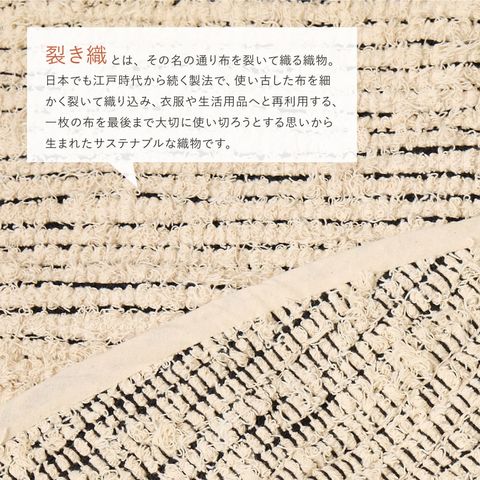 裂き織とは、その名の通り布を裂いて織る織物。
日本でも江戸時代から続く製法で、使い古した布を細
かく裂いて織り込み、衣服や生活用品へと再利用する、
一枚の布を最後まで大切に使い切ろうとする思いから
生まれたサステナブルな織物です。